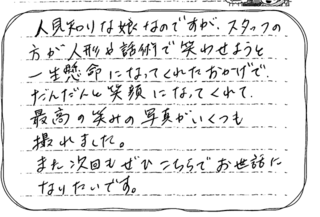 人見知りな娘なのですが、スタッフの
方が人形や話術で笑わせようと
一生懸命になってくれたおかげで、
だんだんと笑顔になってくれて、
最高の笑みの写真がいくつも
撮れました。
また次回もぜひこちらでお世話に
なりたいです。